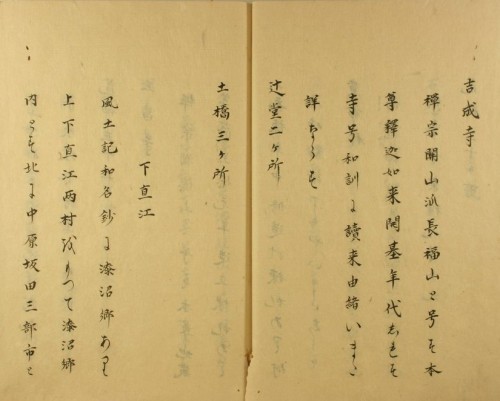 吉成寺
禅宗開山派長福山と号す本
尊釋迦如来開基年代しれす
寺号和訓に讀来由緒いまた
詳ならす
辻堂二ヶ所
土橋三ヶ所
下直江
風土記和名鈔に漆沼郷あり
上下直江両村をもつて漆沼郷
内とす北に中原坂田三部市と